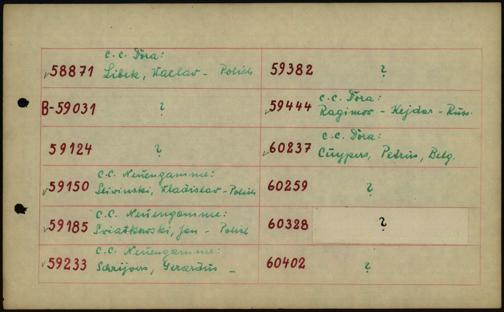 c.c. Dora:
58871 Libek, Vaclav - Polish
B-59031 ?
59124 ?
c.c. Neuengamme:
59150 Slivinski, Vladislav - Polish
c.c. Neuengamme:
59185 Sviatkovski, Jan - Polish
c.c. Neuengamme:
59233 Schrijvers, Gerardus -
59382 ?
c.c. Dora:
59444 Ragimov - Kejdar - Russ.
c.c. Dora:
60237 Cuypers, Petrus, Belg.
60259 ?
60328 ?
60402 ?